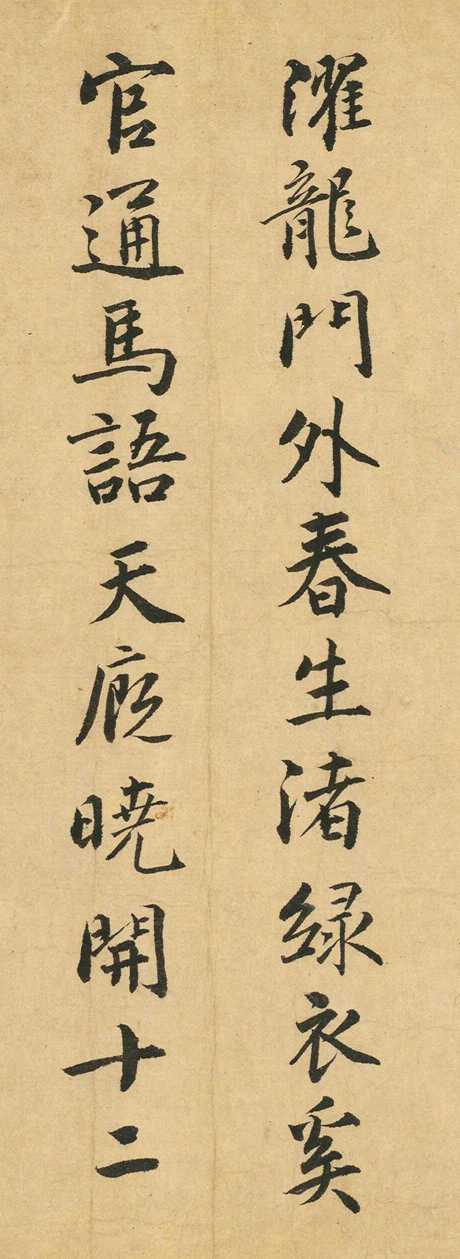 濯龍門外春生渚綠衣奚
官通馬語天廐曉開十二